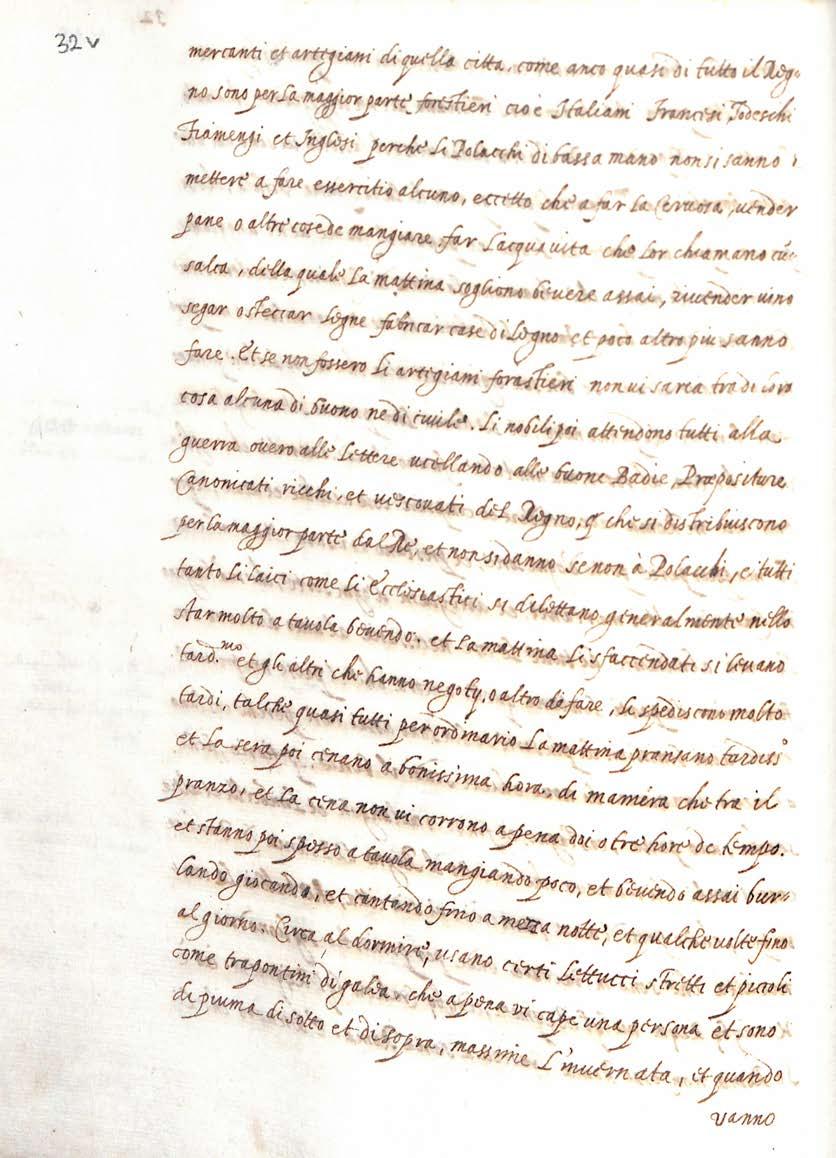 32v
mercanti et artigiani di quella citta, come anco quasi di tutto il Reg-
no sono per la maggior parte forestieri cioè Italiani Francesi Todeschi
Fiamengi et Inglesi perche li Polacchi di bassa mano non si sanno
mettere a fare essercitio alcuno, eccetto che a far la Cervosa, vender
pane o altre cose de mangiare far l'acqua vita che lor chiamano
salca, della quale la mattina sogliono bevere assai, rivender vino
segar o steccar legne fabricar case di legno et poco altro piu sanno
fare. Et se non fossero li artigiani forastieri non vi saria tra di loro
cosa alcuna di buono ne di civile. Li nobili poi attendono tutti alla
guerra overo alle lettere ucellando alle buone Badie, Præpositure
Canonicati ricchi, et vescovati del Regno, che si distribuiscono
per la maggior parte dal Re, et non si danno se non à Polacchi, e tutti
tanto li laici come li Ecclesiastici si dilettano generalmente nello
star molto a tavola bevendo, et la mattina li sfaccendati si levano
tard.mo et gli altri che hanno negotÿ, o altro da fare, li spediscono molto
tardi, talche quasi tutti per ordinario la mattina pransano tardiss.o
et la sera poi cenano a bonissima hora, di maniera che tra il
pranzo, et la cena non vi corrono a pena doi o tre hore de tempo.
et stanno poi spesso a tavola mangiando poco, et bevendo assai bur-
lando giocando, et cantando fino a mezza notte, et qualche volte fino
al giorno. Circa al dormire, usano certi lettucci stretti et piccoli
come trapontini di galea, che a pena vi cape una persona et sono
di piuma di sotto et di sopra, massime l'invernata, et quando
vanno